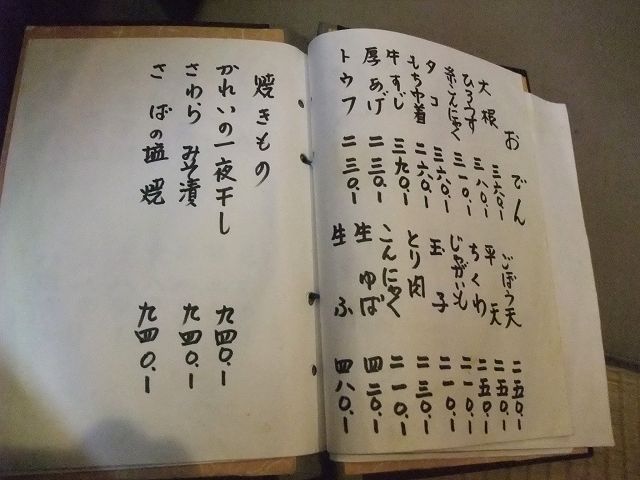 おでん
大根 三六〇.ー
ひろうす 三八〇.ー
糸こんにゃく 三一〇.ー
タコ 三六〇.ー
もち巾着 二六〇.ー
牛すじ 三九〇.ー
厚あげ 二三〇.ー
トウフ 二三〇.ー
ごぼう天 二五〇.ー
平天 二五〇.ー
ちくわ 二五〇.ー
じゃがいも 二一〇.ー
玉子 二一〇.ー
とり肉 二三〇.ー
こんにゃく 二一〇.ー
生ゆば 四二〇.ー
生ふ 四八〇.ー
焼きもの
かれいの一夜干し 九四〇.ー
さわら みそ漬 九四〇.ー
さばの塩焼 九四〇.ー